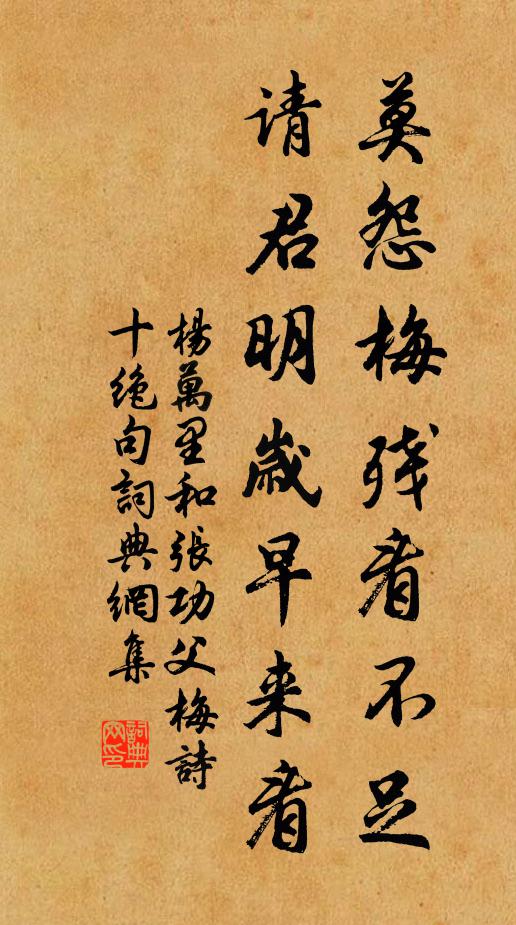 莫怨梅残看不足
请君明岁早来看
楊萬里和張功父梅詩
十絶句詞典網集
詞典
网印